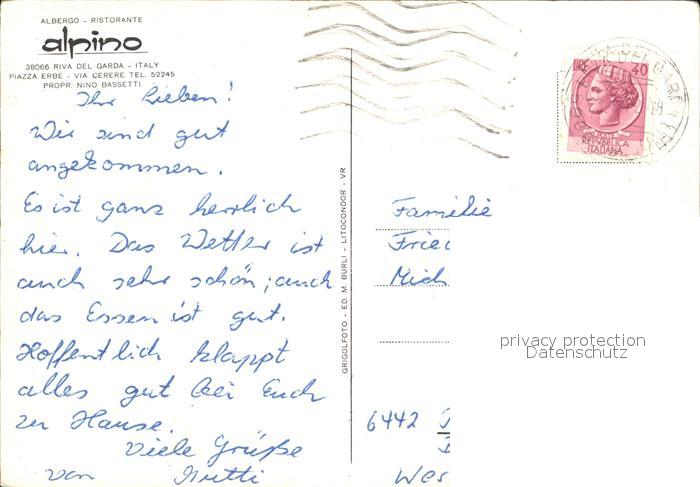 ALBERGO - RISTORANTE
alpino
38066 RIVA DEL GARDA - ITALY
PIAZZA ERBE - VIA CERERE TEL. 52245
PROPR. NINO BASSETTI
Ihr Lieben!
Wir sind gut
angekommen.
Es ist ganz herrlich
hier. Das Wetter ist
auch sehr schön; auch
das Essen ist gut.
Hoffentlich klappt
alles gut bei Euch
zu Hause.
Viele Grüße
von Mutti
GRIGOLFOTO - ED. M. BURLI - LITOCONDOR - VR
40
POSTE
REPVBBLICA
ITALIANA
Familie
Fried
Mich
privacy protection
Datenschutz
6442
Wes